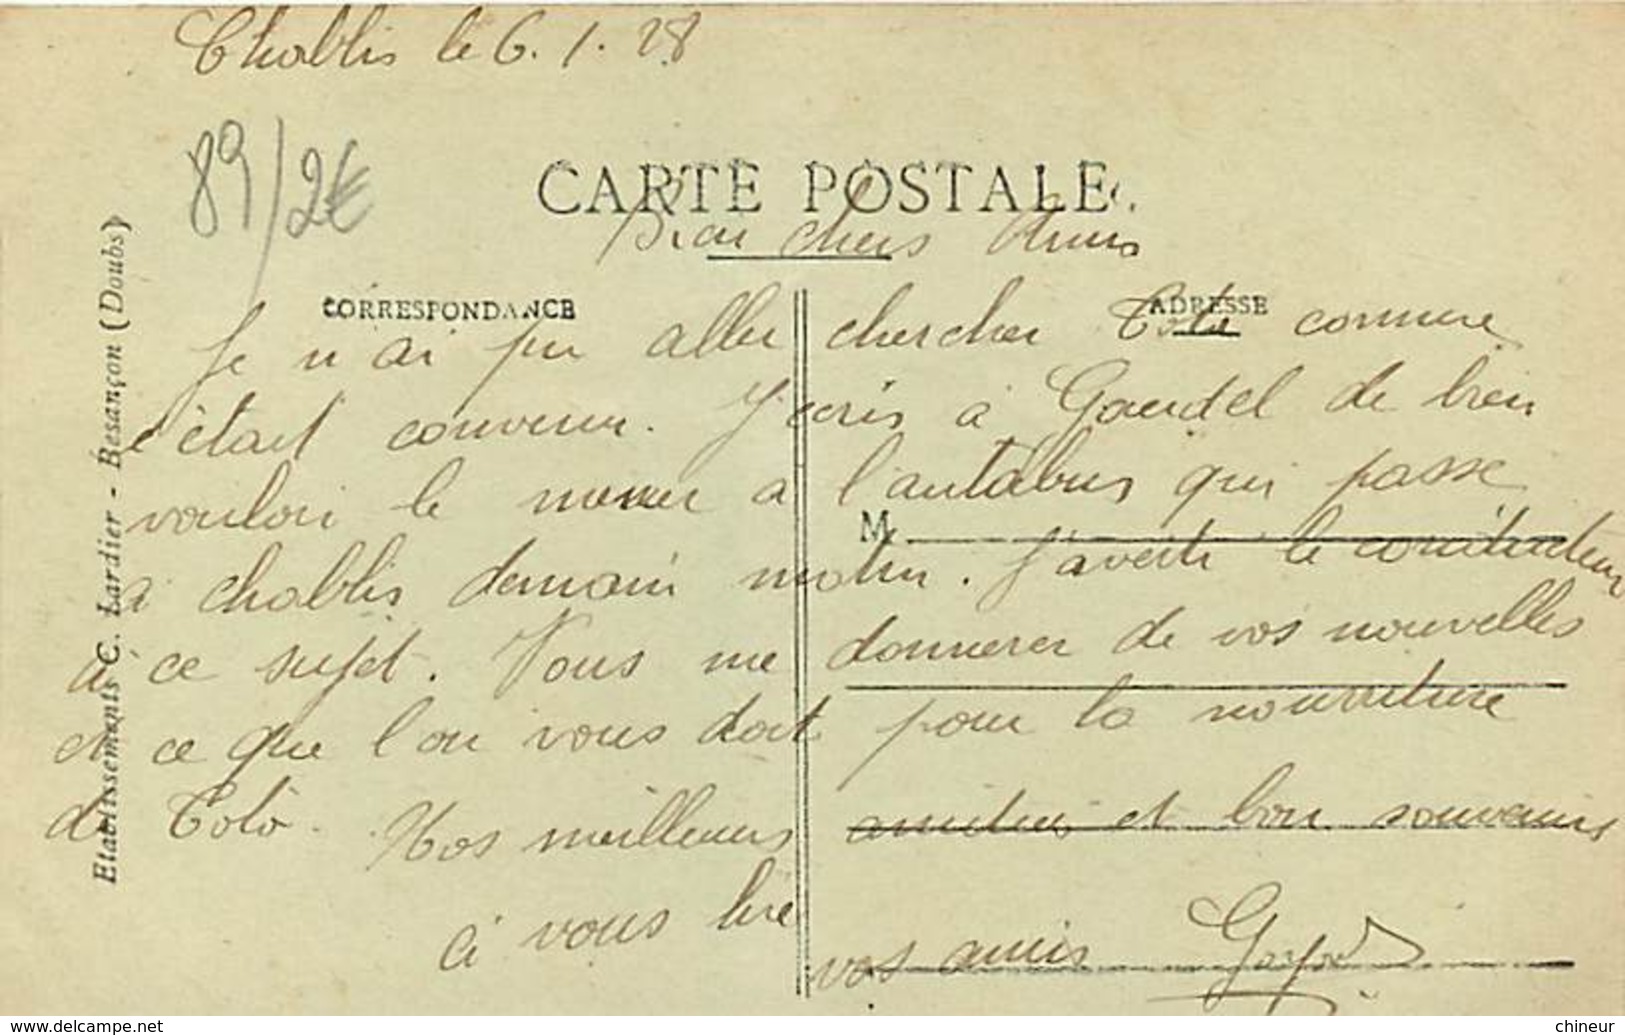 Chablis le 6.1.28
89/2€
CARTE POSTALE
Bien chers Amis
CORRESPONDANCE
ADRESSE
Je n'ai pu aller chercher Toto comme
c'était convenu. J'écris à Gaudel de bien
vouloir le mener à l'autobus qui passe
M
à Chablis demain matin. J'averti le conducteur
à ce sujet. Vous me donnerer de vos nouvelles
et ce que l'on vous doit pour la nourriture
de Toto. Nos meilleures amitiés et bon souvenirs
à vous lire
vos amis
Etablissements C. Lardier - Besançon (Doubs)
chineur
www.delcampe.net